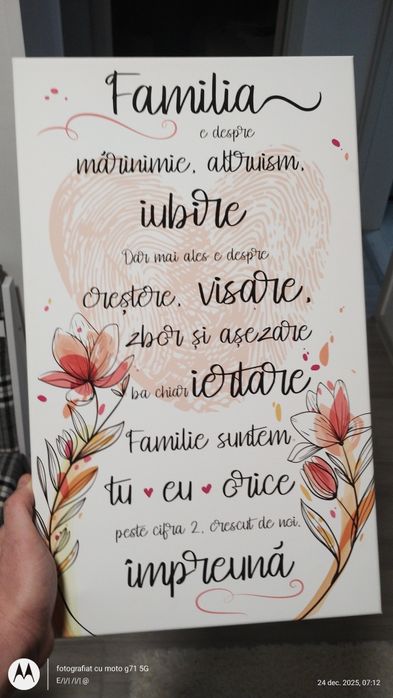 Familia
e despre
mărinimie, altruism,
iubire
Dar mai ales e despre
creștere, visare,
zbor și așezare
ba chiar iertare
Familie suntem
tu ♥ eu ♥ orice
peste cifra 2, crescut de noi,
împreună
fotografiat cu moto g71 5G
24 dec. 2025, 07:12